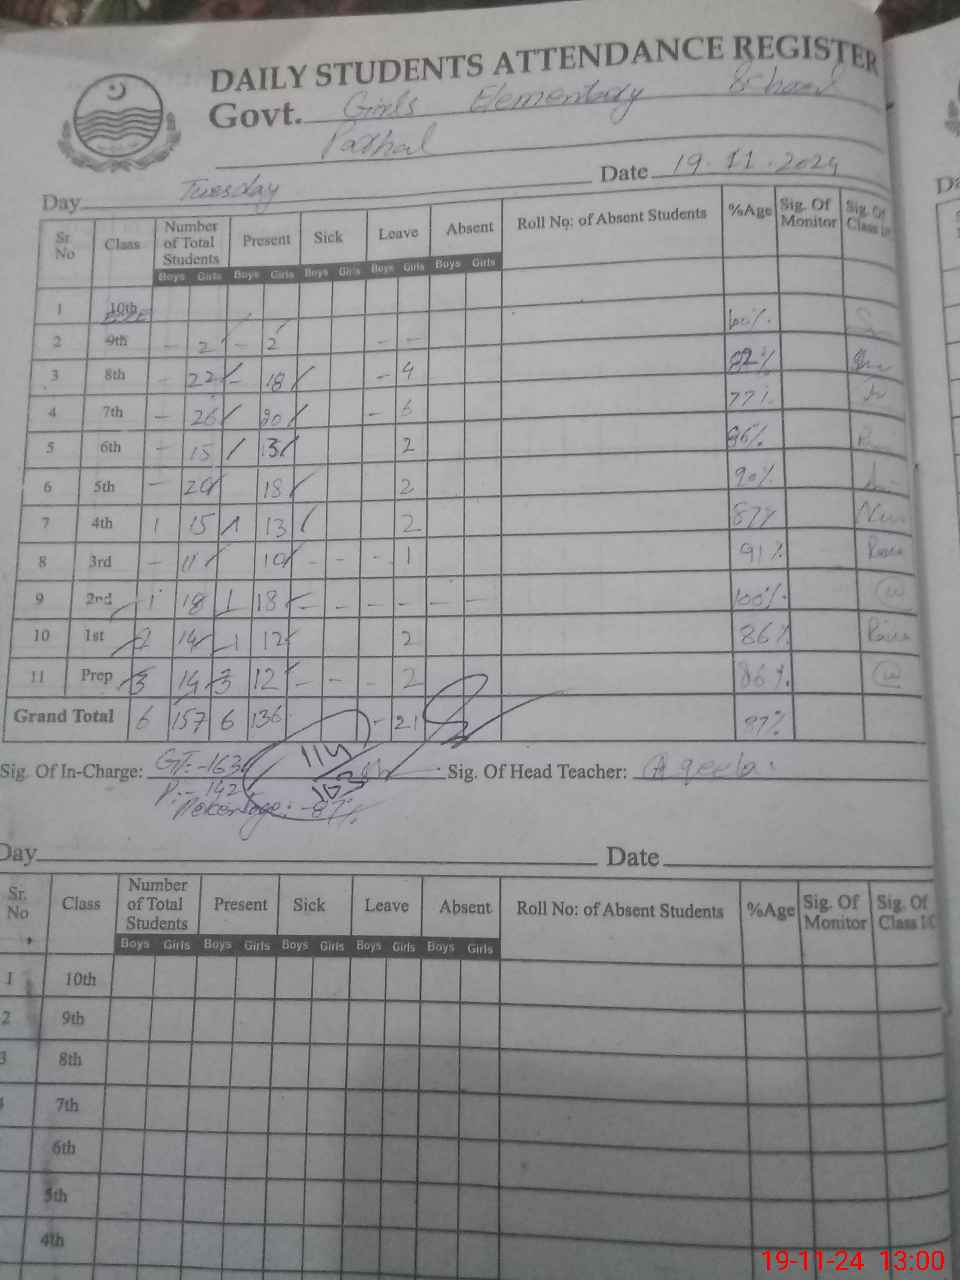 DAILY STUDENTS ATTENDANCE REGISTER
Govt. Girls Elementary School
Pathal
Day Tuesday Date 19.11.2024
Sr. No Class Number of Total Students Present Sick Leave Absent Roll No: of Absent Students %Age Sig. Of Monitor Sig. Of Class
Boys Girls Boys Girls Boys Girls Boys Girls Boys Girls
1 10th
2 9th - 2 - 2 - - 100%
3 8th - 22 - 18 - 4 82%
4 7th - 26 20 - 6 77%
5 6th - 15 13 2 86%
6 5th - 20 18 2 90%
7 4th 1 15 1 13 2 87%
8 3rd - 11 10 - - - 1 91%
9 2nd 1 18 1 18 - - - - - - 100%
10 1st 2 14 1 12 2 86%
11 Prep 3 14 3 12 - - - 2 86%
Grand Total 6 157 6 136 - 21 87%
Sig. Of In-Charge: GT:-163 114 163 Sig. Of Head Teacher: Aqeela
P:- 142
Percentage:- 87%
Day Date
Sr. No Class Number of Total Students Present Sick Leave Absent Roll No: of Absent Students %Age Sig. Of Monitor Sig. Of Class I/C
Boys Girls Boys Girls Boys Girls Boys Girls Boys Girls
1 10th
2 9th
3 8th
4 7th
6th
5th
4th
19-11-24 13:00